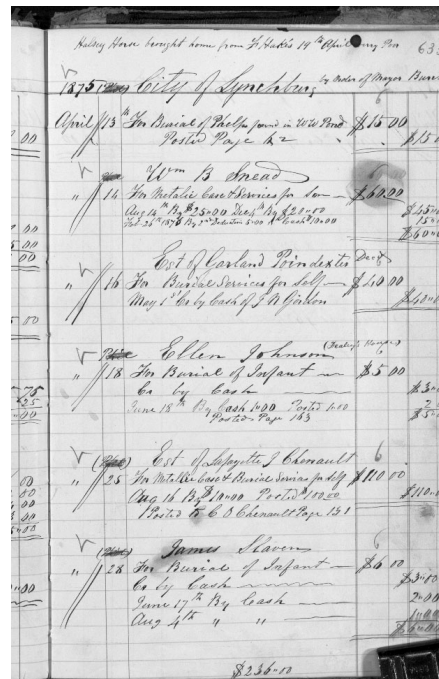 Halsey Horse brought home from F Hak's 19th April
633
1875 City of Lynchburg by Order of Mayor
April 13th For Burial of found in W W Pond $15.00
Posted Page 42 $15
Wm B Snead 6
" 14 For Metalic Case & Services for Son $60.00
Aug 14th By $25"00 Dec 4th By $20"00 $45"
Feb 26th 1876 By 5"00 Cash 10"00 15"
$60"
Est of Garland Poindexter
" 16 For Burial Services for Self $40.00
May 1st Cr by Cash of J R Gordon $40"0
Ellen Johnson
" 18 For Burial of Infant $5 00
Cr by Cash $3"
June 18th By Cash 1"00 Posted 1"00 2
Posted Page 163 $5"
Est of Lafayette J Chenault 6
" 25 For Metallic Case & Burial Services for Self $110 00
Aug 16 By $10"00 Posted $100.00 $110"
Posted to C O Chenault Page 131
James Slaven 6
" 28 For Burial of Infant $6 00
Cr by Cash $3"00
June 17th By Cash 2"00
Aug 4th " " 1"00
$6"00
$236"00